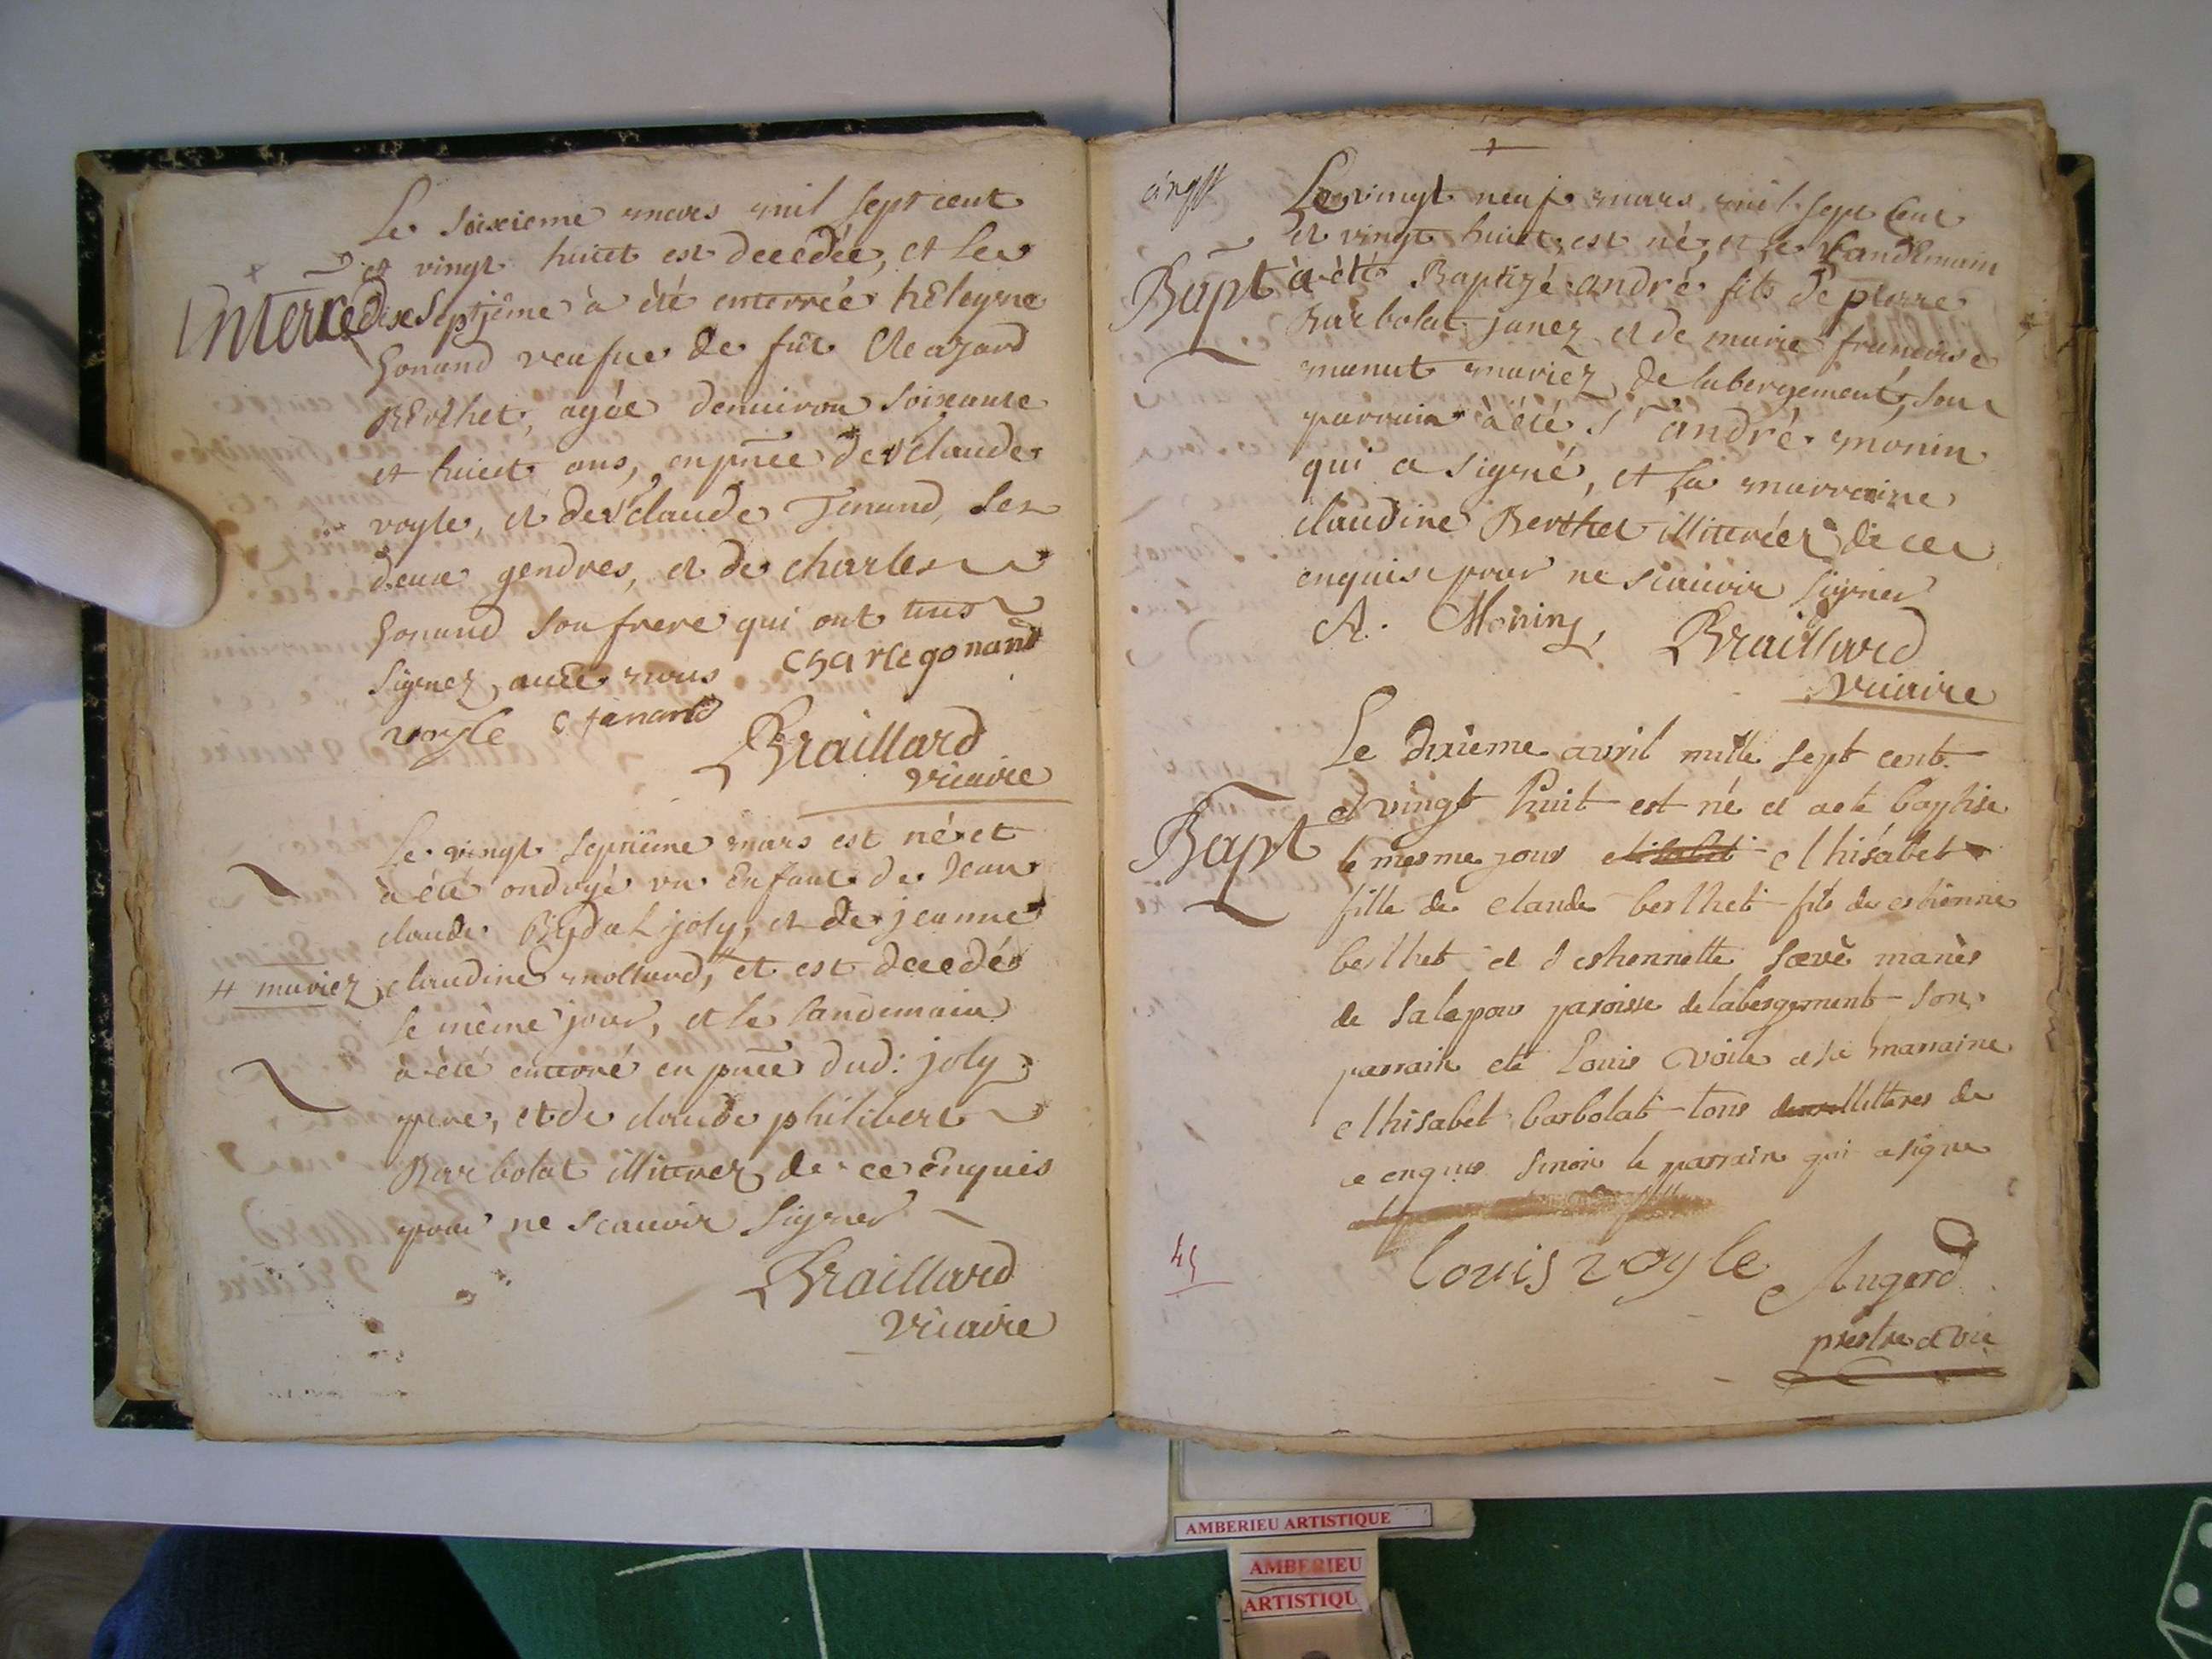 Le Seixieme mars mil sept cent
et vingt huict est decedée, et le
Interrée
dixseptjême à été enterrée hêleyne
Gonand veufue de fût Cleazard
Berthet, agée denuiron soixante
et huict ans, en pnce de sr claude
voyle, et de sr claude Tenand, ses
deux gendres, et de charles
Gonand son frere qui ont tous
signez, auec nous Charle gonand
voyle C tenand
Braillard
vicaire
Le vingt septième mars est né et
à été ondoyé vn Enfant de Jean
claude joly, et de jeanne
# mariez
claudine mollard, # et est decedé
le même jour, et le landemain
à été enterré en pnce dud: joly
pere, et de claude philibert
Barbolat illiterez de ce Enquis
pour ne scauoir signer
Braillard
Vicaire
vingt
Le vingt neuf mars mil sept Cent
et vingt huict, est né, et le Landemain
Bapt
à été Baptizé andré fils de pierre
Barbolat janez et de marie francoise
manut mariez de labergement, son
parrain à été sr andré monin
qui a signé, et sa marraine
claudine Berthet illiterées de ce
enquise pour ne scauoir signer
A. Monin,
Braillard
vicaire
Le dixieme avril mille sept cent
et vingt huit est né et aete baptise
Bapt
le mesme jour elisabet elhisabet
fille de claude berthet fils de estienne
berthet et destiennette mariés
de paroisse de labergement son
parrain eté Louis voile et sa marraine
elhisabet barbolat tous illitteres de
ce enquis sinon le parrain qui a signe
45
louis voyle
Augerd
prestre et vic
AMBERIEU ARTISTIQUE
AMBERIEU
ARTISTIQU